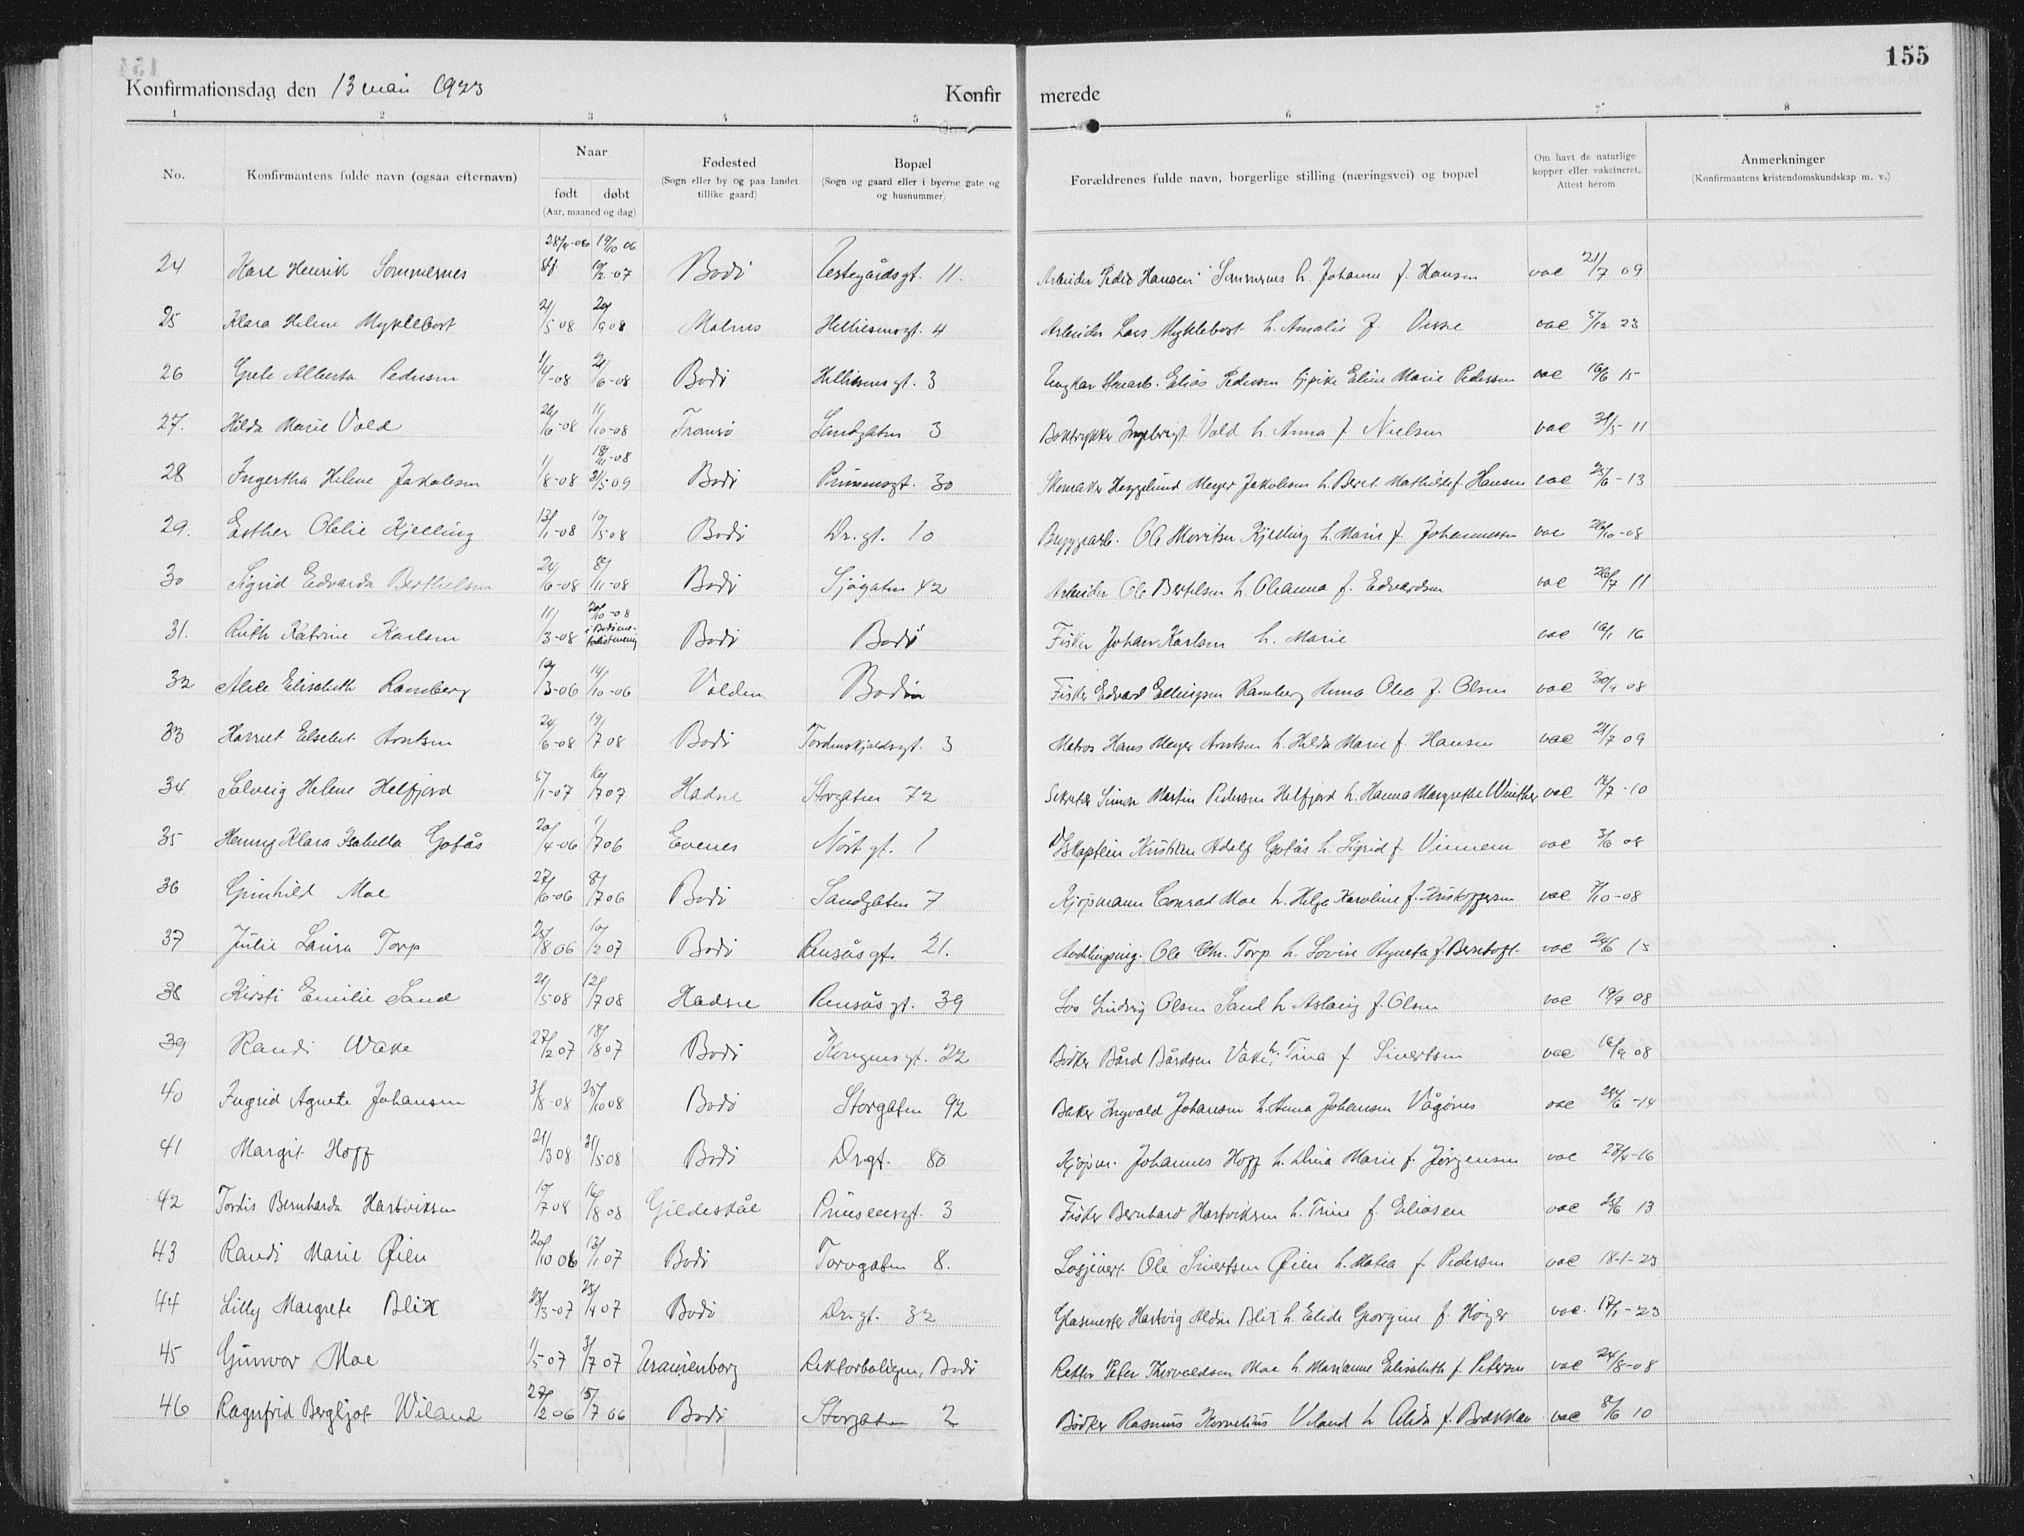 155
Konfirmationsdag den 13 mai 1923 Konfirmerede
1 2 3 4 5 6 7 8
No. Konfirmantens fulde navn (ogsaa efternavn) Naar født døbt (Aar, maaned og dag) Fødested (Sogn eller by og paa landet tillike gaard) Bopæl (Sogn og gaard eller i byerne gate og og husnummer) Forældrenes fulde navn, borgerlige stilling (næringsvei) og bopæl Om havt de naturlige kopper eller vakcineret. Attest herom Anmerkninger (Konfirmantens kristendomskundskap m. v.)
24 Kare Henrik Sommernes Bodø 11. Arbeider Peder Hansen Sommernes h. Johanne f. Hansen vac 21/7 09
25 Klara Helene Myklebost 5 08 9 08 4 Arbeider Lars Myklebost h. Amalie f. vac 5/12 23
26 Grete Alberta Pedersen 1/4-08 21/6-08 Bodø 3 Elias Pedersen Eline Marie Pedersen vac 16/6 15
27. Hilda Marie Vold 6-08 11/10-08 Tromsø Sandgaten 3 Boktrykker Ingebrigt Vold h. Anna f Nielsen vac 31/5 11
28 Ingertha Helene Jakobsen 1/8-08 18/11-08 31/5 09 Bodø Prinsensgt. 30 Skomaker Meyer Jakobsen h. Beret Mathilde f. Hansen vac 25/6-13
29. Esther Olelie Kjelling 13/1-08 5 08 Bodø Dr. gt. 10 Bryggearb. Ole Moritsen Kjelling h. Marie f. Johannessen vac 26/10-08
30 Sigrid Edvarda Berthelsen 24/6-08 8/11-08 Bodø Sjøgaten 42 Arbeider Ole Bertelsen h. Oleanna f. Edvardsen vac 26/7 11
31. Ruth Katrine Karlsen 11/3-08 10-08 Bodø Bodø Fisker Johan Karlsen h. Marie vac 16/1 16
32 Alice Elisabeth Ramberg 3-06 14/10-06 Valden Bodin Fisker Edvard Ellingsen Ramberg Anna Olea f. Olsen vac 30/9 08
33 Harriet Elsebet Arntsen 24/6-08 19/7 08 Bodø Tordenskjoldsgt. 3 Matros Hans Meyer Arntsen h. Hilda Marie f. Hansen vac 21/7 09
34. Solveig Helene Helfjord 5/1-07 7 07 Hadsel Storgaten 72 Sekretær Simon Martin Pedersen Helfjord h. Hanna Margrethe Winther vac 12/7-10
35 Henny Klara Isabella Gofås 20/4-06 1/7 06 Evenes gt. 1 D/Skaptein Kristian Adolf Gofås h. Sigrid f. Vinnem vac 3/6 08
36 Gunhild Moe 27/6-06 8/7 06 Bodø Sandgaten 7 Kjøpmann Conrad Moe h. Helga Karoline f. Kristoffersen vac 7/10-08
37 Julie Laura Torp 8 06 10/2 07 Bodø Rensåsgt. 21. Ole Chr. Torp h. Lovise Agneta f. Berntoft. vac 24/6 15
38 Kirsti Emilie Sand 21/5 08 12/7 08 Hadsel Rensåsgt. 39 Los Ludvig Olsen Sand h. Aslaug f. Olsen vac 19/9 08
39 Randi Wake 27/2 07 18/8 07 Bodø Kongensgt. 22 Bødker Bård Bårdsen Vake h. Tina f Sivertsen vac 16/9 08
40 Ingrid Agnete Johansen 3/8-08 25/10 08 Bodø Storgaten 92 Baker Ingvald Johansen h. Anna Johansen Vågønes vac 24/6-14
41 Margit Hoff 21/3 08 31/5 08 Bodø Dr gt. 80 Kjøpm. Johannes Hoff h. Dina Marie f. Jørgensen vac 27/4-16
42 Tordis Bernharda Hartviksen 7 08 16/8 08 Gildeskål Prinsensgt. 3 Fisker Bernhard Hartviksen h. Trine f. Eliasen vac 25/6 13
43 Randi Marie Øien 20/10 06 13/1 07 Bodø Torvgaten 8. Losjivert Ole Sivertsen Øien h. Matea f. Pedersen vac 18-1-23
44 Lilly Margrete Blix 23/3-07 25/4 07 Bodø Dr. gt. 32 Glasmester Hartvig Aldon Blix h. Elida Georgine f. Høyer vac. 17/1-23
45 Gunvor Moe 1/5 07 3/7 07 Uranienborg Rektorboligen, Bodø Rektor Peter Thorvaldsen Moe h. Marianne Elisabeth f. Petersen vac 24/8-08
46 Ragnfrid Bergljot Wiland 27/2 06 15/7 06 Bodø Storgaten 2 Bødker Rasmus Kornelius Viland h Alida f. vac 8/6 10